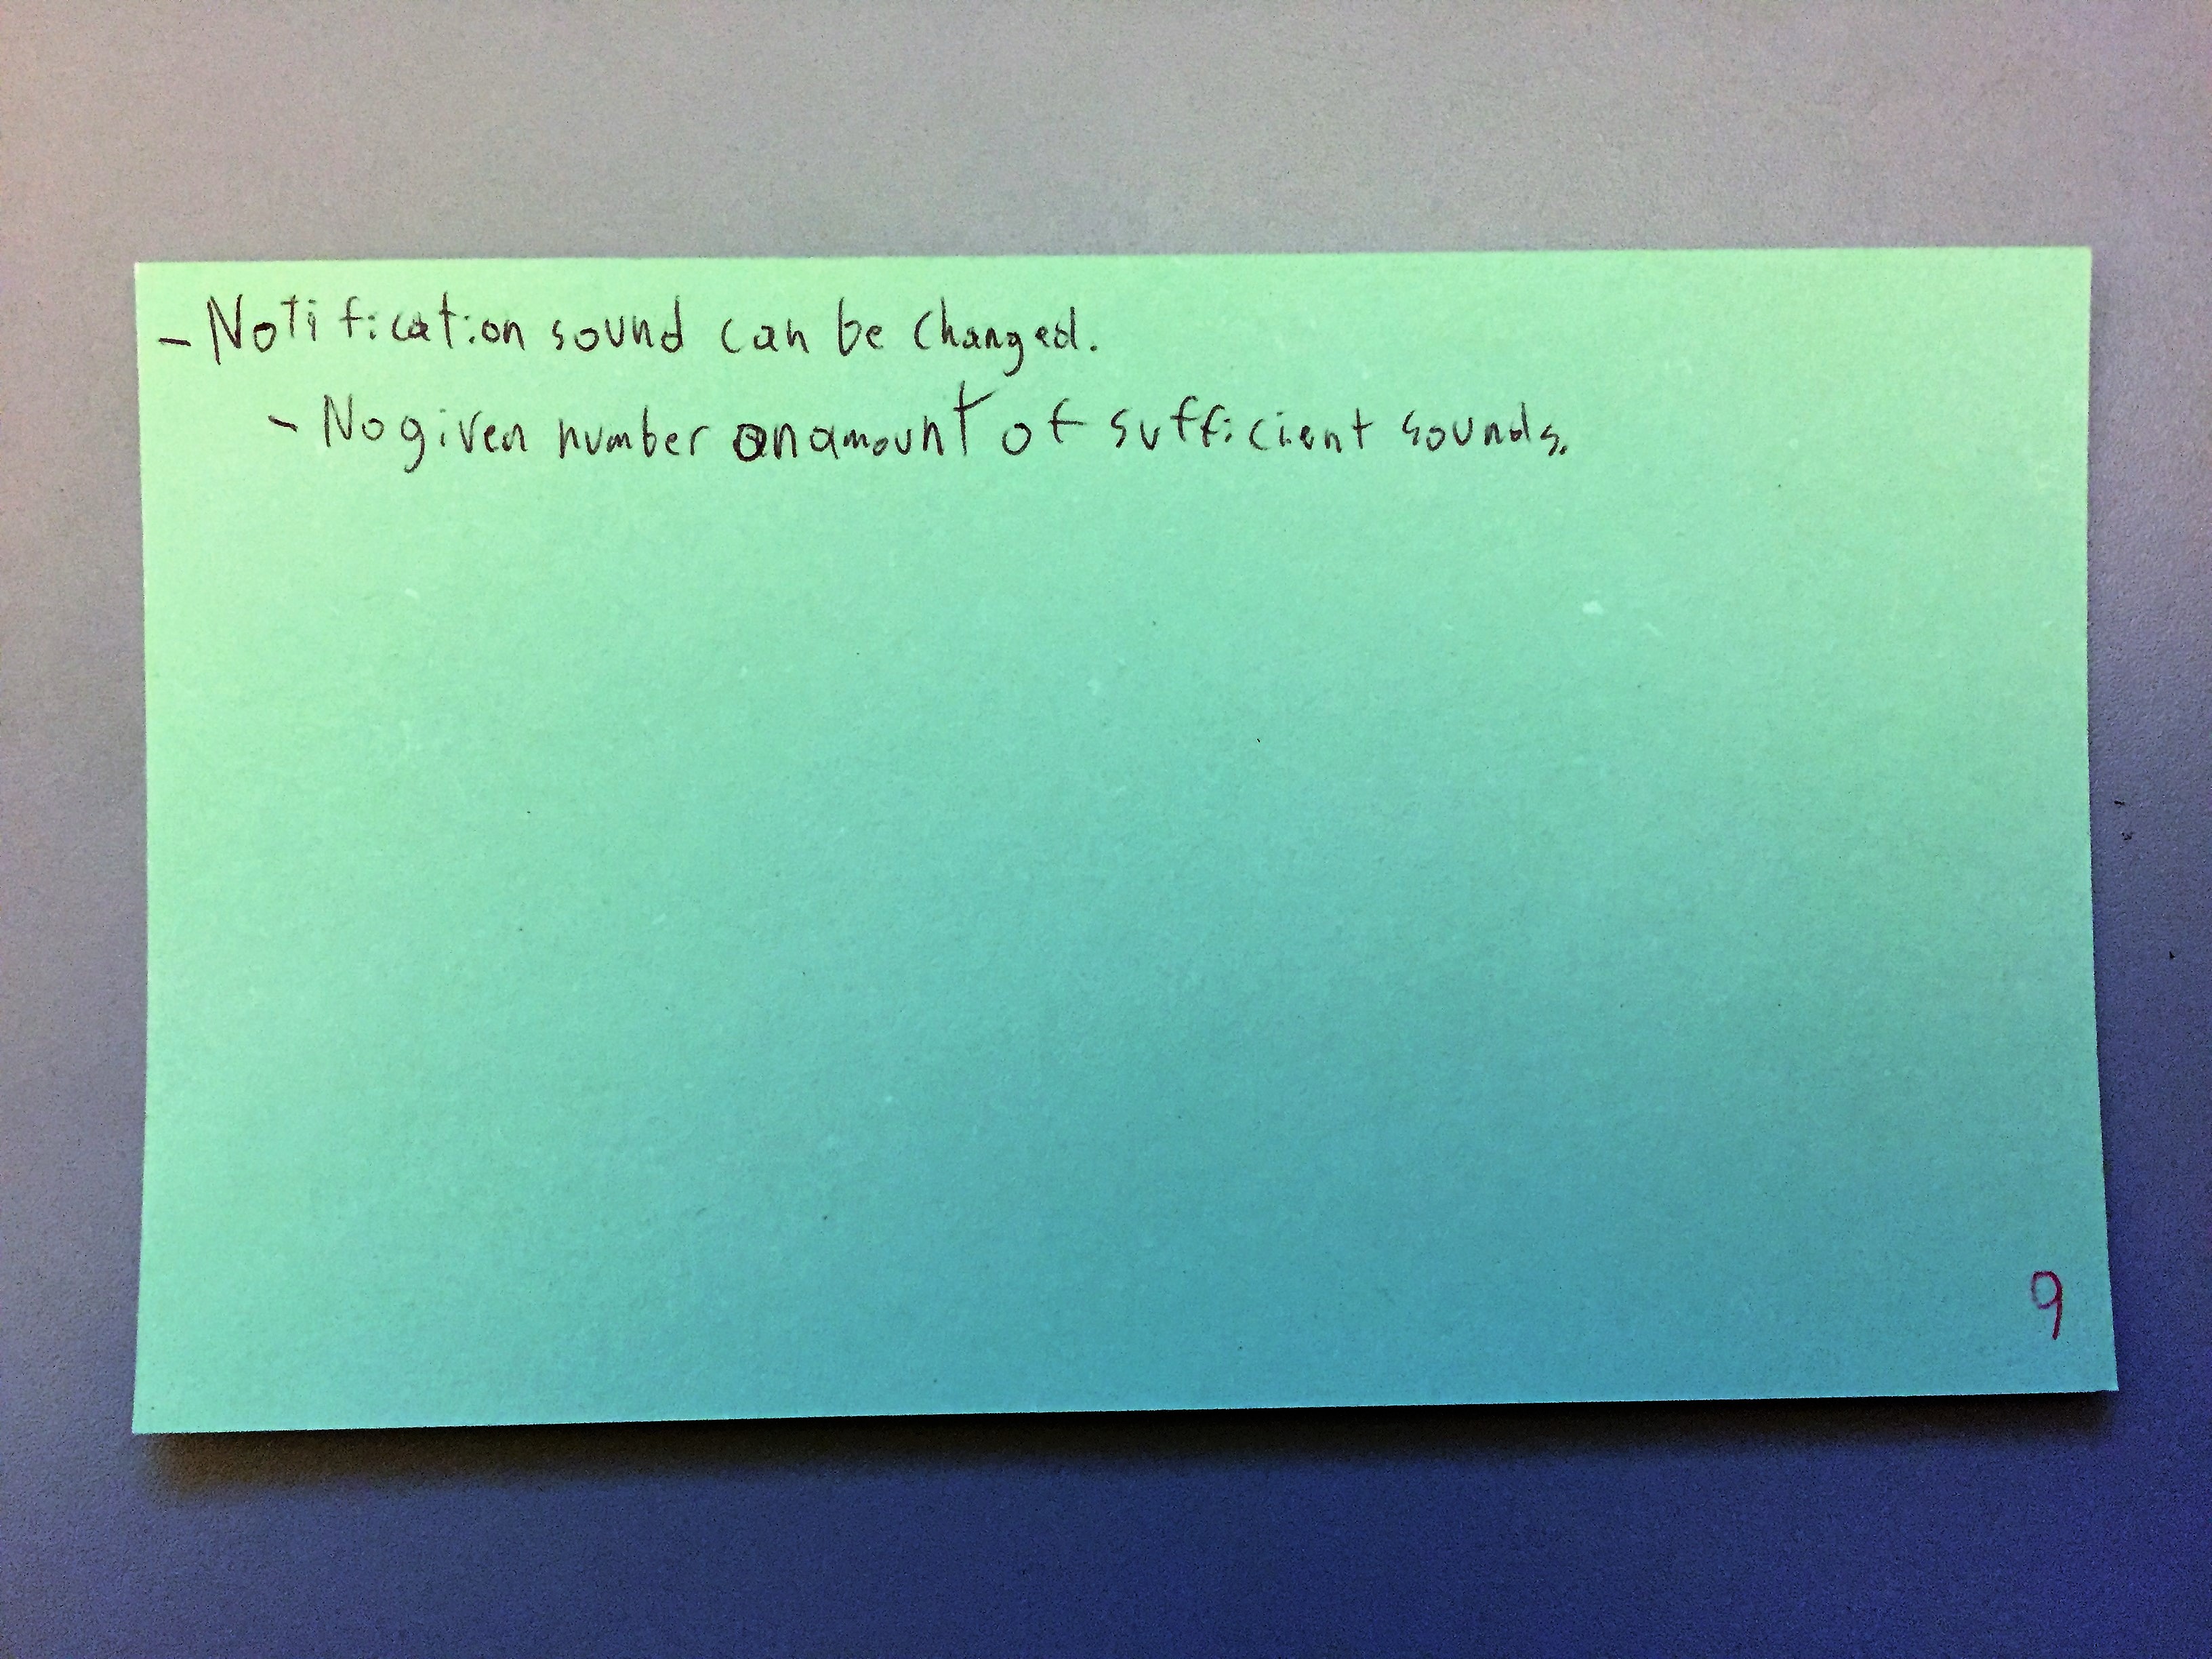 - Notification sound can be changed.
- No given number on amount of sufficient sounds.
9